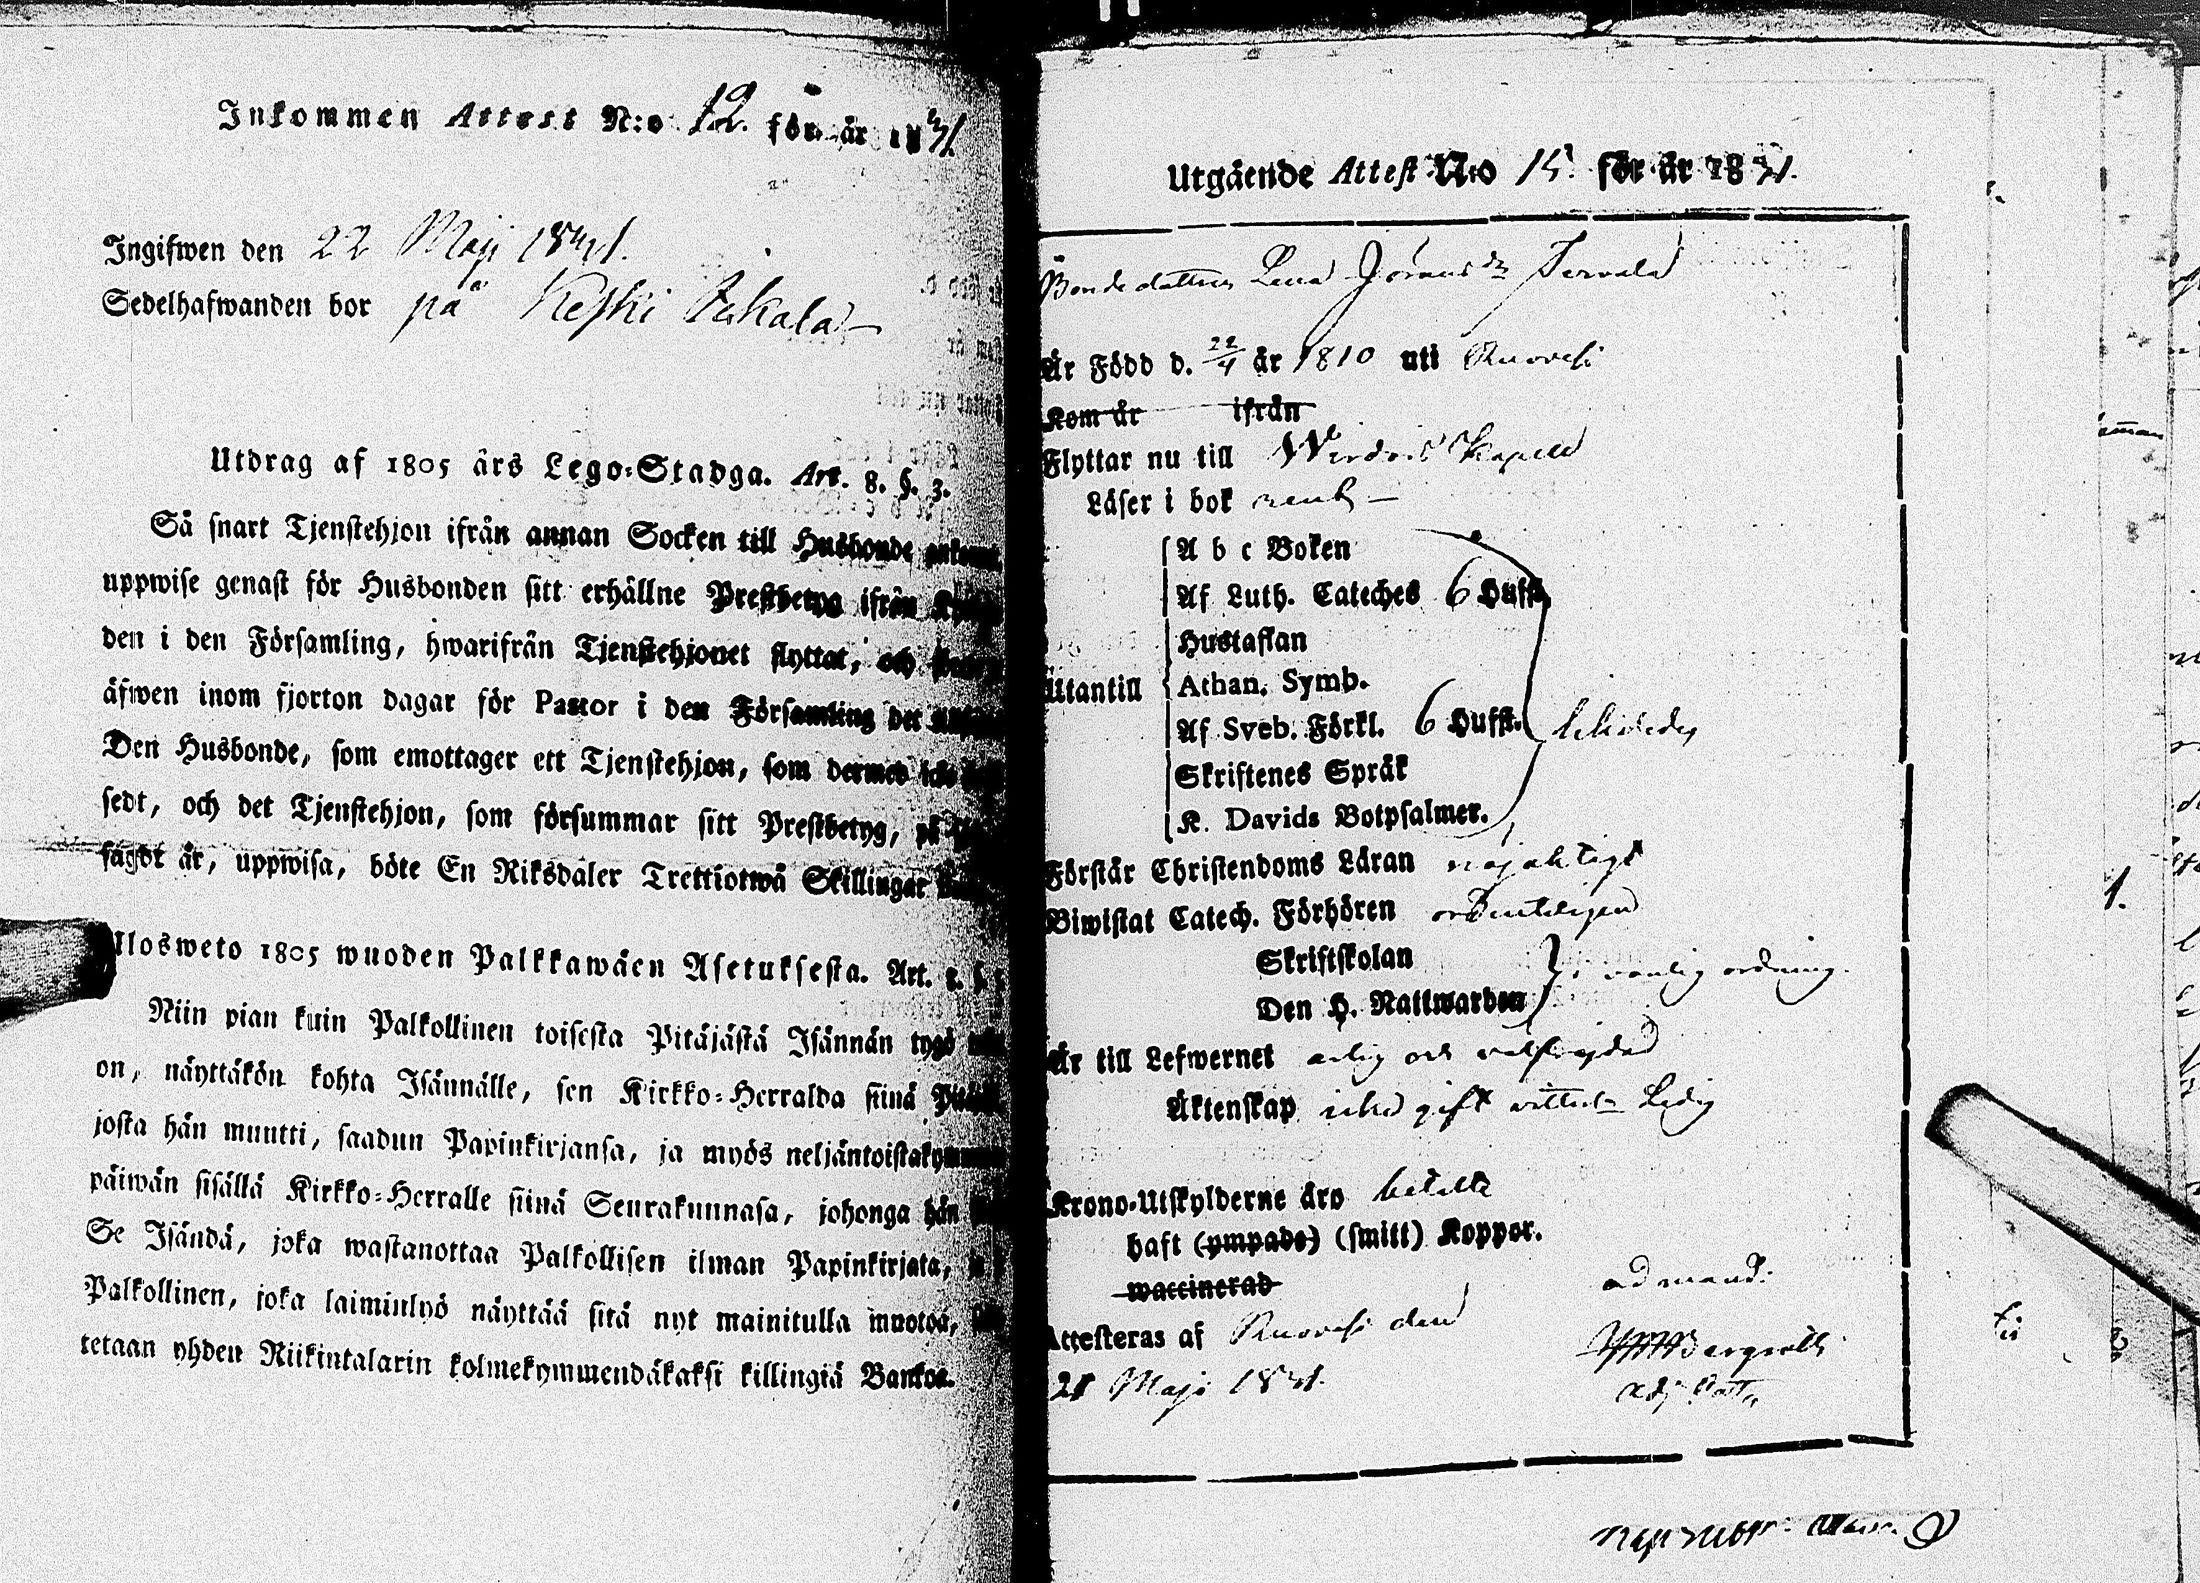 Inkommen Attest N:o 12. för år 1841.
Ingifwen den 22 Maji 1841.
Sedelhafwanden bor på Keski
Utdrag af 1805 års Lego-Stadga. Art. 8. §. 3.
Så snart Tjenstehjon ifrån annan Socken till Husbonde
uppwise genast för Husbonden sitt erhållne Prestbetyg ifrån
den i den Församling, hwarifrån Tjenstehjonet flyttat, och
äfwen inom fjorton dagar för Pastor i den Församling det
Den Husbonde, som emottager ett Tjenstehjon, som dermed icke
sedt, och det Tjenstehjon, som försummar sitt Prestbetyg, på
sagdt är, uppwisa, böte En Riksdaler Trettiotwå Skillingar
Ulosweto 1805 wuoden Palkkawäen Asetuksesta. Art. 8. §.
Niin pian kuin Palkollinen toisesta Pitäjästä Isännän tygö
on, näyttäkön kohta Isännälle, sen Kirkko-Herralda siinä
josta hän muutti, saadun Papinkirjansa, ja myös neljäntoistakymmenen
päiwän sisällä Kirkko-Herralle siinä Seurakunnasa, johonga hän
Se Isändä, joka wastanottaa Palkollisen ilman Papinkirjata,
Palkollinen, joka laiminlyö näyttää sitä nyt mainitulla muotoa,
tetaan yhden Riikintalarin kolmekymmendäkaksi killingiä Bankos.
Utgående Attest N:o 15. för år 1841.
Bondedottren Lena Jöransdr
Är Född d. 22/4 år 1810 uti Ruovesi
Kom år ifrån
Flyttar nu till Wirdois Kapell
Läser i bok rent —
A b c Boken
Af Luth. Cateches 6 Hufst.
Hustaflan
Utantill Athan. Symb.
Af Sveb. Förkl. 6 Hufst.
Skriftenes Språk
K. Davids Botpsalmer.
Förstår Christendoms Läran nöjaktigt
Biwistat Catech. Förhören ordenteligen
Skriftskolan
Den H. Nattwarden i vanlig ordning.
Är till Lefwernet ärlig och välfrejdad
Äktenskap icke gift Ledig
Krono-Utskylderne äro betalte
haft (ympade) (smitt) Koppor.
waccinerad
ad mand:
Attesteras af Ruovesi den
21 Maji 1841.
Bergroth
Adj.
1.